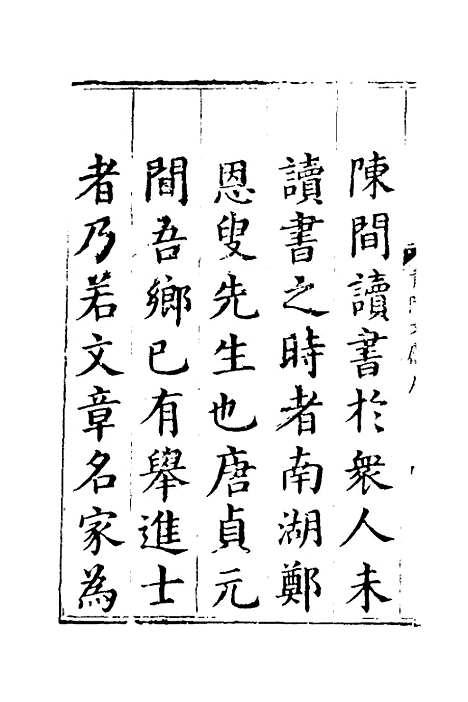 陳間讀書於衆人未
讀書之時者南湖鄭
恩叟先生也唐貞元
間吾鄉已有舉進士
者乃若文章名家為